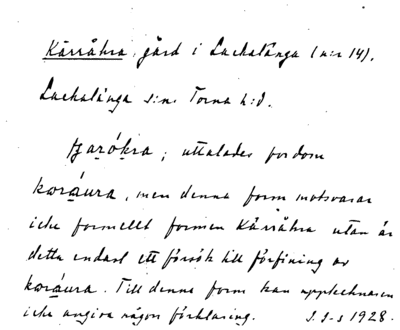 Kärråkra, gård i Lackalänga (n:r 14).
Lackalänga s:n. Torna h:d.
uttalades fordom
koráura, men denna form motsvarar
icke formellt formen Kärråkra utan är
detta endast ett försök till förfining av
koráura. Till denna form kan upptecknaren
icke angiva någon förklaring. S. S-s 1928.